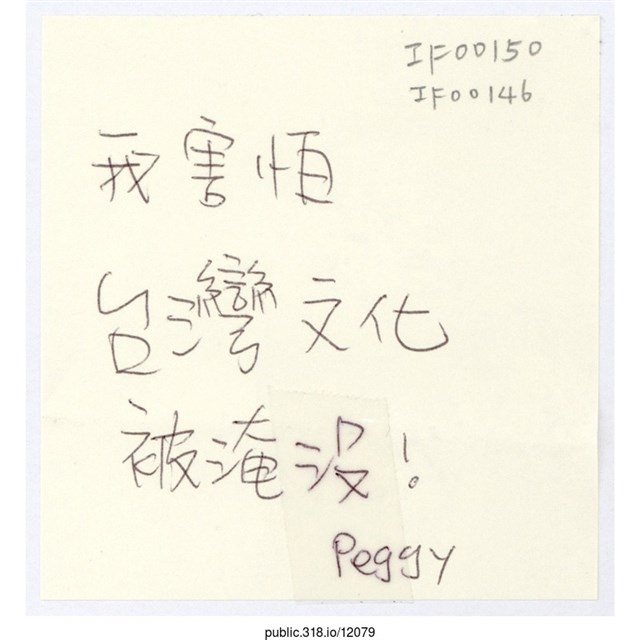 IF00150
IF00146
我害恒
台灣文化
被淹沒！
Peggy
public.318.io/12079